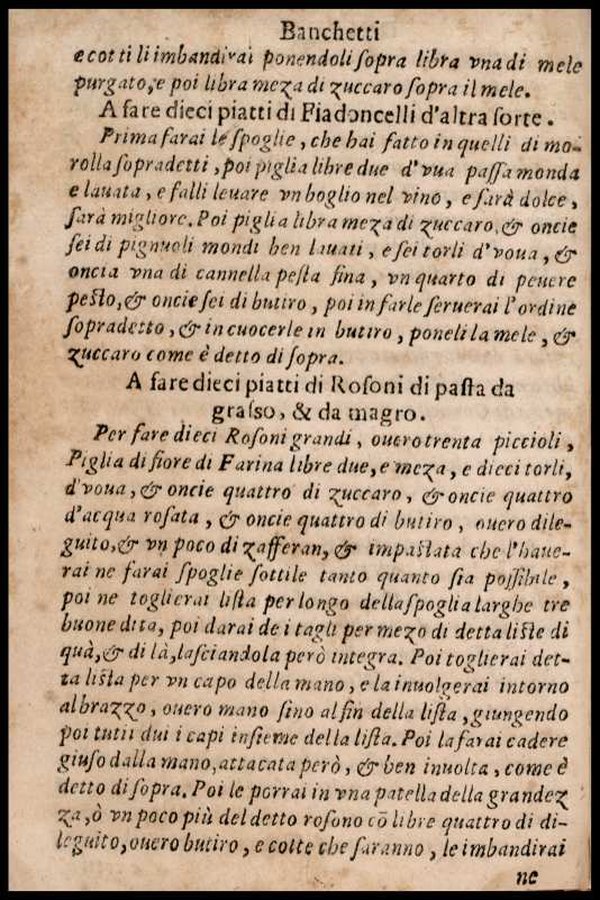 Banchetti
e cotti li imbandirai ponendoli ſopra libra vna di mele
purgato, e poi libra meza di zuccaro ſopra il mele.
A fare dieci piatti di Fiadoncelli d'altra ſorte.
Prima farai le ſpoglie, che hai fatto in quelli di mo-
rolla ſopradetti, poi piglia libre due d'vua paſſa monda
e lauata, e falli leuare vn boglio nel vino, e ſarà dolce,
ſarà migliore. Poi piglia libra meza di zuccaro, & oncie
ſei di pignuoli mondi ben lauati, e ſei torli d'voua, &
oncia vna di cannella peſta fina, vn quarto di peuere
peſto, & oncie ſei di butiro, poi in farle ſeruerai l'ordine
ſopradetto, & in cuocerle in butiro, poneli la mele, &
zuccaro come è detto di ſopra.
A fare dieci piatti di Roſoni di paſta da
graſſo, & da magro.
Per fare dieci Roſoni grandi, ouero trenta piccioli,
Piglia di fiore di Farina libre due, e meza, e dieci torli,
d'voua, & oncie quattro di zuccaro, & oncie quattro
d'acqua roſata, & oncie quattro di butiro, ouero dile-
guito, & vn poco di zafferan, & impaſtata che l'haue-
rai ne farai ſpoglie ſottile tanto quanto ſia poſſibile,
poi ne toglierai liſta per longo della ſpoglia larghe tre
buone dita, poi darai de i tagli per mezo di detta liſte di
quà, & di là, laſciandola però integra. Poi toglierai det-
ta liſta per vn capo della mano, e la inuolgerai intorno
al brazzo, ouero mano ſino al fin della liſta, giungendo
poi tutii dui i capi inſieme della liſta. Poi la farai cadere
giuſo dalla mano, attacata però, & ben inuolta, come è
detto di ſopra. Poi le porrai in vna patella della grandez
za, ò vn poco più del detto roſono cō libre quattro di di-
leguito, ouero butiro, e cotte che ſaranno, le imbandirai
ne